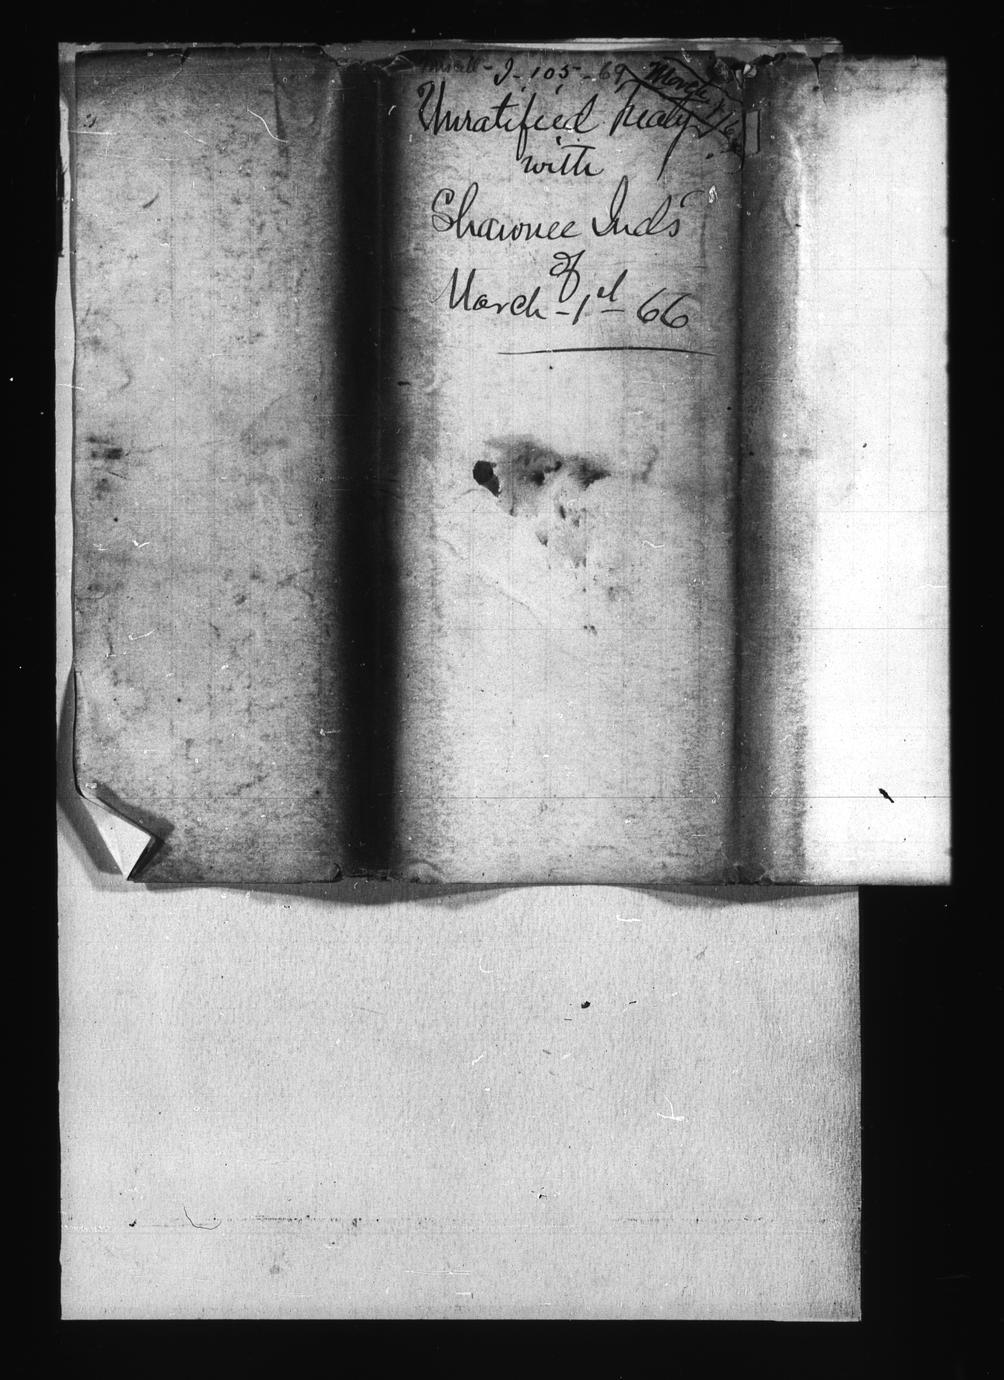 I-105-69
Unratified Treaty
with
Shawnee Inds
of
March-1st-66